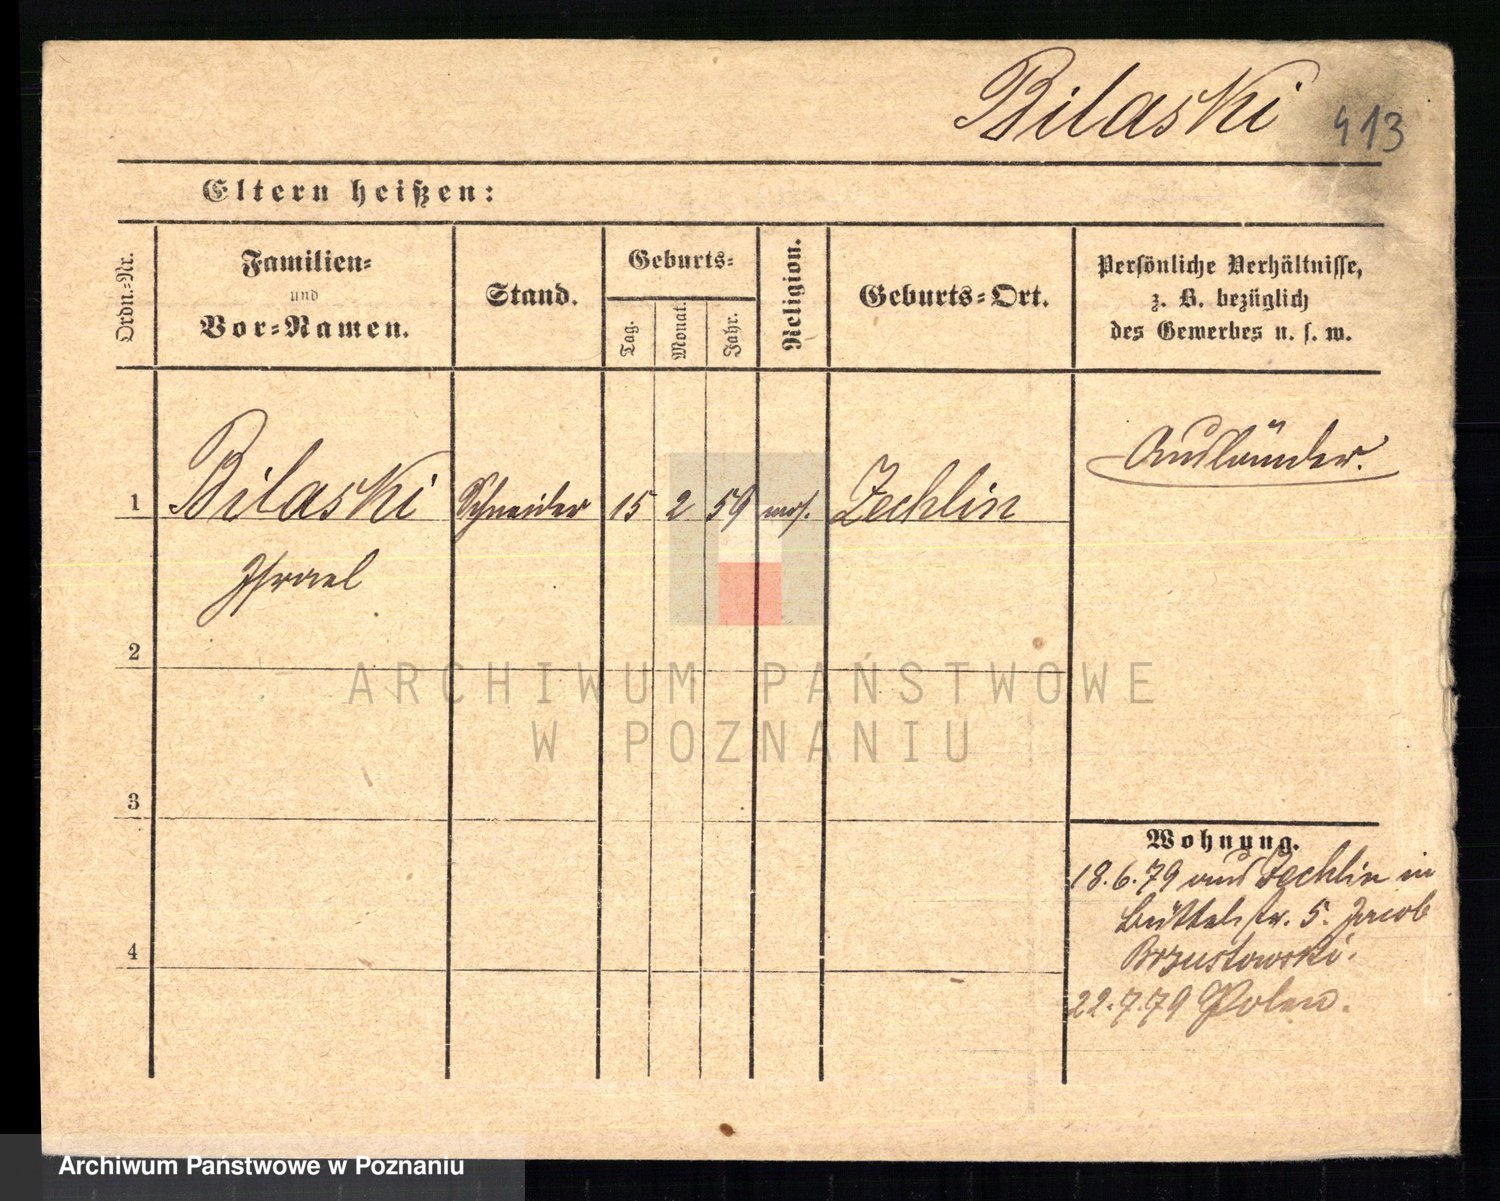 Bilaski 413
Eltern heißen:
Ordn.-Nr.
Familien-
und
Vor-Namen.
Stand.
Geburts-
Tag.
Monat.
Jahr.
Religion.
Geburts-Ort.
Persönliche Verhältnisse,
z. B. bezüglich
des Gewerbes u. s. w.
Ausländer.
1 Bilaski Schneider 15 2 59 mos. Zechlin
Israel
2
3
4
Wohnung.
18.6.79 aus Zechlin in
Büttelstr. 5. Jacob
Brzustowski.
22.7.79 Polen.
ARCHIWUM PAŃSTWOWE
W POZNANIU
Archiwum Państwowe w Poznaniu